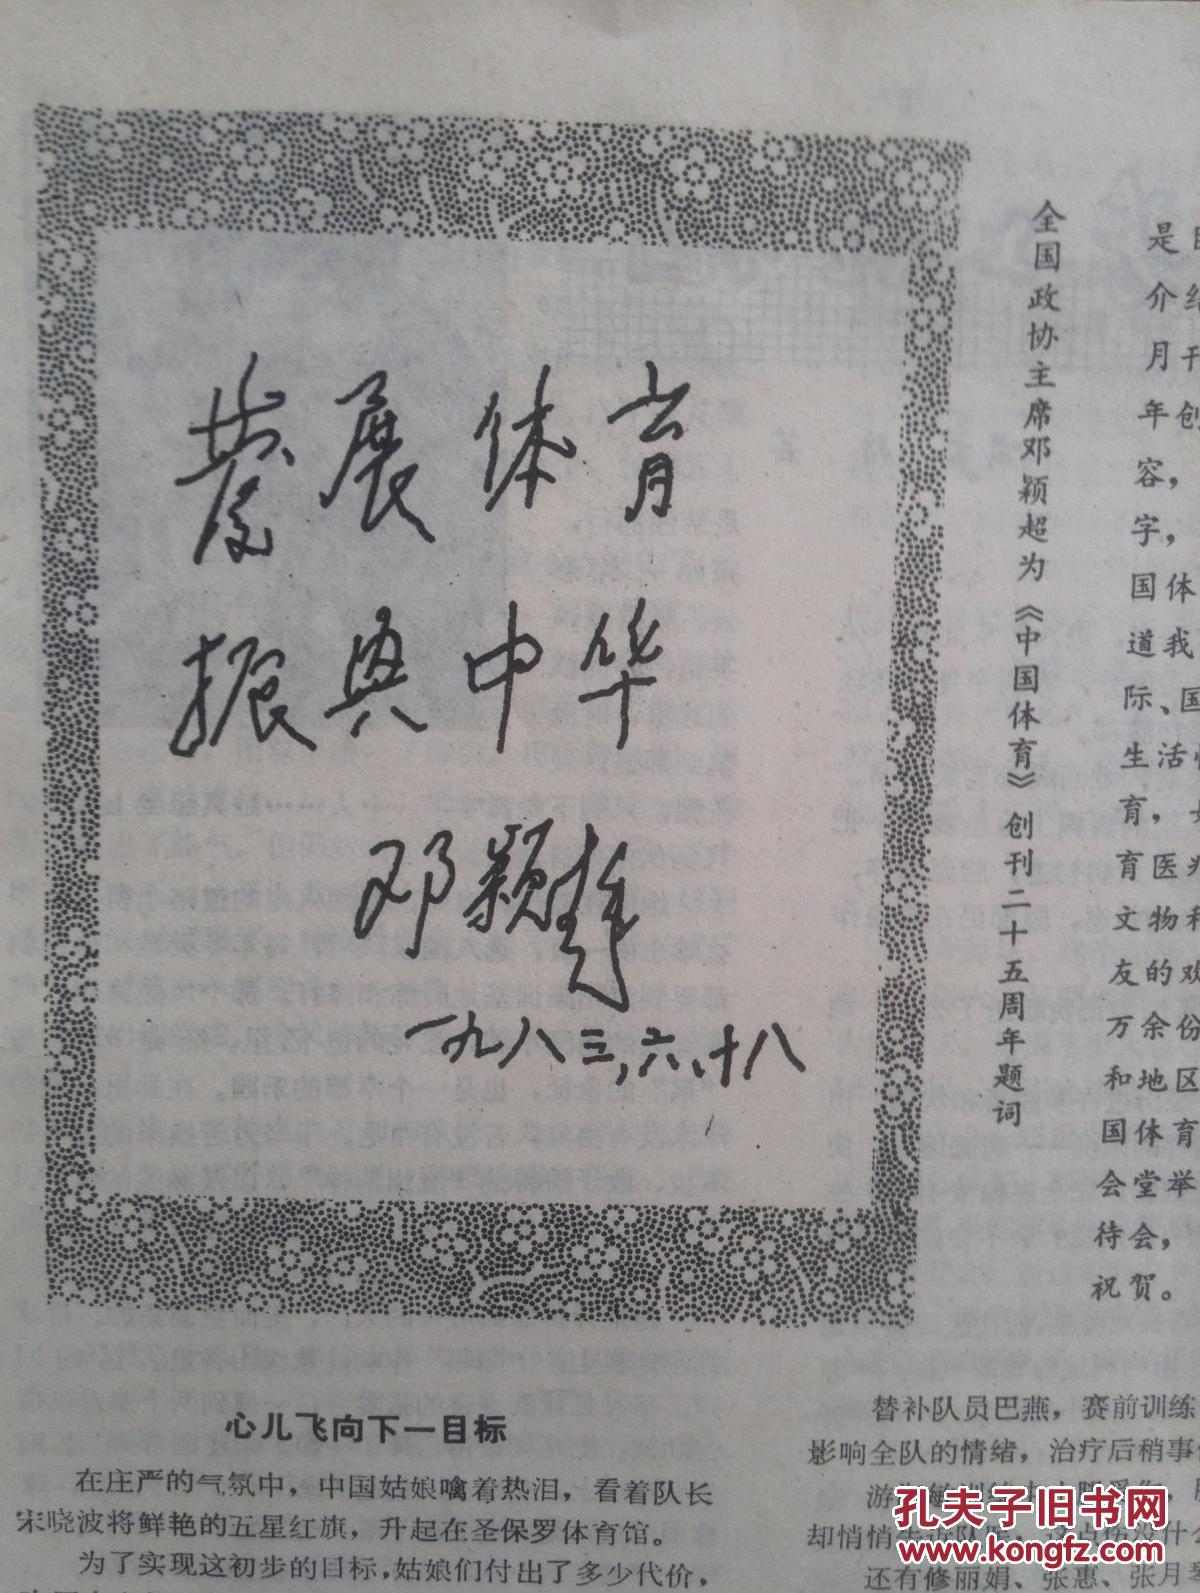 发展体育
振兴中华
邓颖超
一九八三,六、十八
全国政协主席邓颖超为《中国体育》创刊二十五周年题词
是
介绍
月刊
年创
容，
字，
国体
道我
际、国
生活
育，
育医
文物和
友的欢
万余份
和地区
国体育
会堂举
待会，
祝贺。
心儿飞向下一目标
在庄严的气氛中，中国姑娘噙着热泪，看着队长
宋晓波将鲜艳的五星红旗，升起在圣保罗体育馆。
为了实现这初步的目标,姑娘们付出了多少代价，
替补队员巴燕，赛前训练
影响全队的情绪，治疗后稍事
却悄悄
还有修丽娟、张惠、张月
孔夫子旧书网
www.kongfz.com